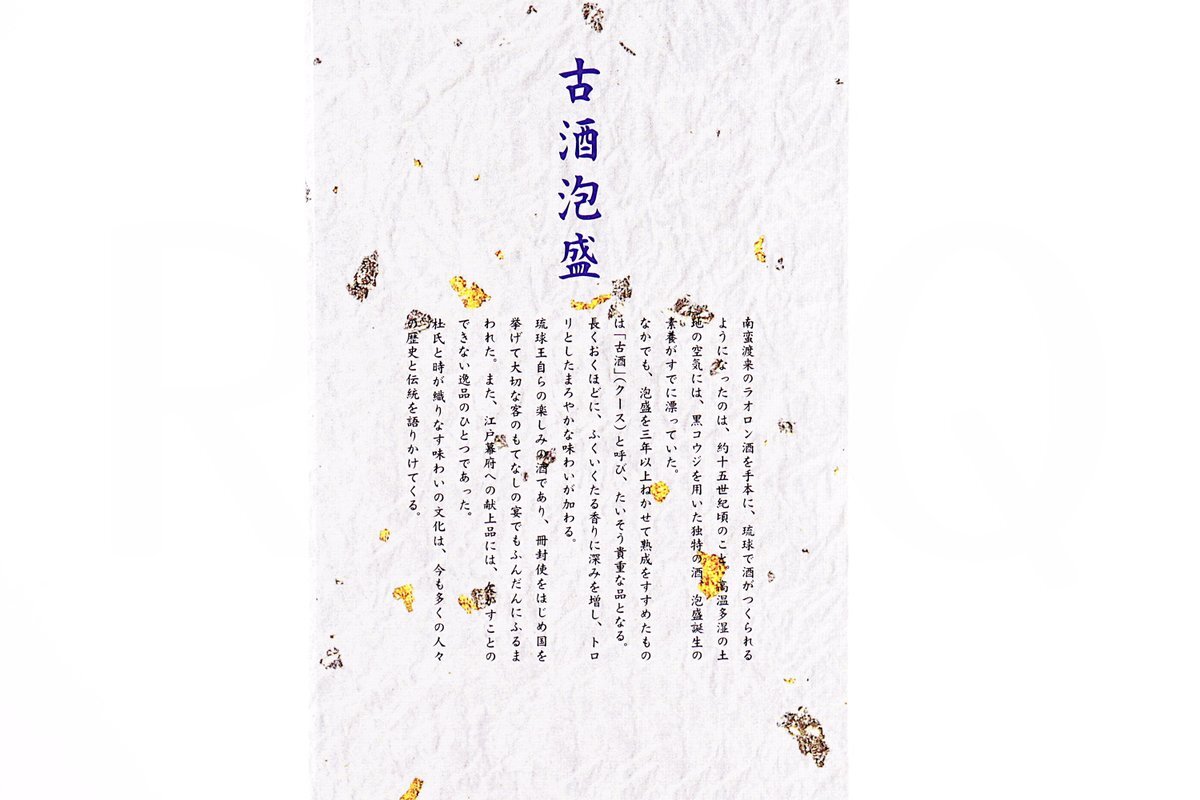 古酒泡盛
南蛮渡来のラオロン酒を手本に、琉球で酒がつくられる
ようになったのは、約十五世紀頃のこと。高温多湿の土
地の空気には、黒コウジを用いた独特の酒 泡盛誕生の
素養がすでに漂っていた。
なかでも、泡盛を三年以上ねかせて熟成をすすめたもの
は「古酒」(クース)と呼び、たいそう貴重な品となる。
長くおくほどに、ふくいくたる香りに深みを増し、トロ
リとしたまろやかな味わいが加わる。
琉球王自らの楽しみの酒であり、冊封使をはじめ国を
挙げて大切な客のもてなしの宴でもふんだんにふるま
われた。また、江戸幕府への献上品には、欠かすことの
できない逸品のひとつであった。
杜氏と時が織りなす味わいの文化は、今も多くの人々
の歴史と伝統を語りかけてくる。